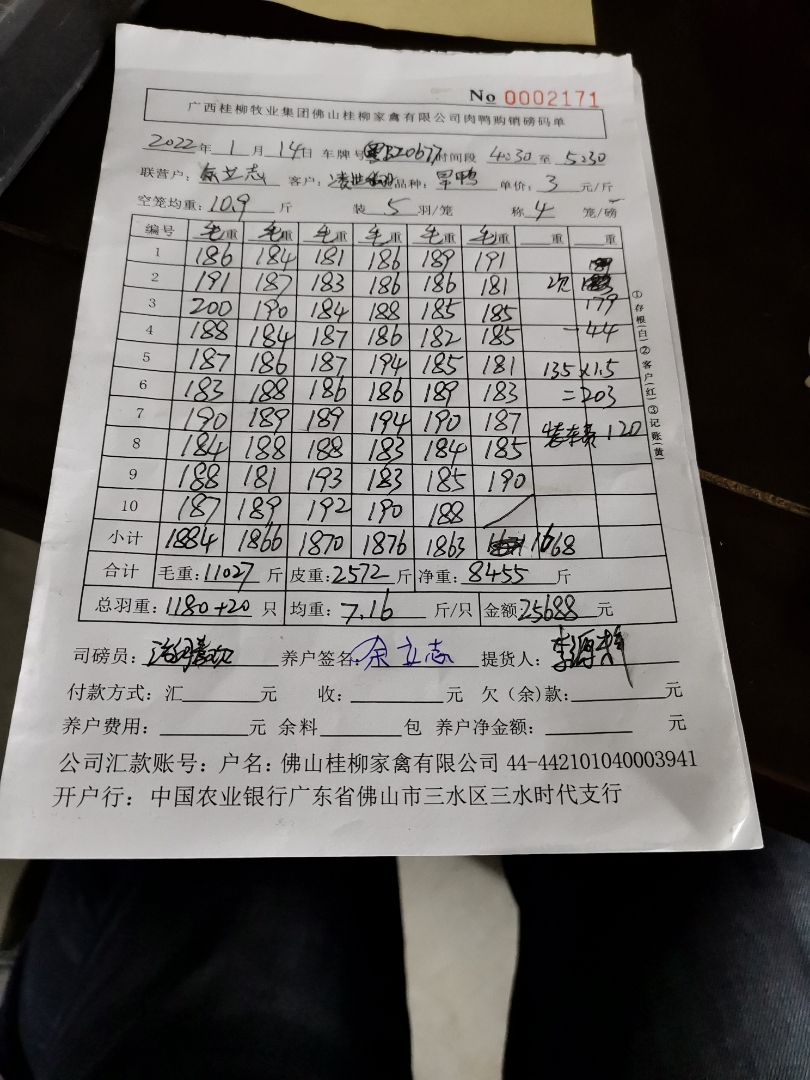 No 0002171
广西桂柳牧业集团佛山桂柳家禽有限公司肉鸭购销磅码单
2022年 1 月 14日 车牌号粤BZ0677时间段 4:30 至 5:30
联营户: 余立志 客户: 品种: 旱鸭 单价: 3 元/斤
空笼均重: 10.9 斤 装 5 羽/笼 称 4 笼/磅
编号 毛重 毛重 毛重 毛重 毛重 毛重 重 重
1 186 184 181 186 189 191
2 191 187 183 186 186 181 次
3 200 190 184 188 185 185 179
4 188 184 187 186 182 185 -44
5 187 186 187 194 185 181 135×1.5
6 183 188 186 186 189 183 =203
7 190 189 189 194 190 187
8 184 188 188 183 184 185 装车费 120
9 188 181 193 183 185 190
10 187 189 192 190 188
小计 1884 1866 1870 1876 1863 1668
合计 毛重:11027 斤 皮重:2572 斤 净重:8455 斤
总羽重:1180+20 只 均重:7.16 斤/只 金额25688 元
司磅员: 养户签名:余立志 提货人:
付款方式:汇 元 收: 元 欠(余)款: 元
养户费用: 元 余料 包 养户净金额: 元
公司汇款账号:户名:佛山桂柳家禽有限公司 44-442101040003941
开户行:中国农业银行广东省佛山市三水区三水时代支行
①存根(白)②客户(红)③记账(黄)